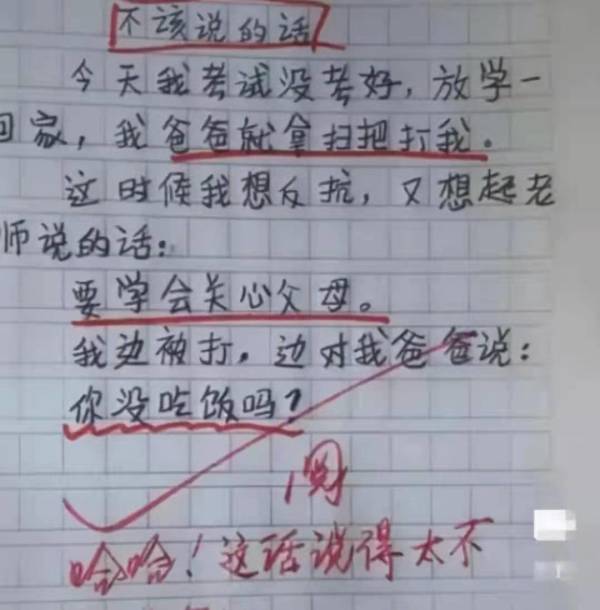 不该说的话
今天我考试没考好，放学一
回家，我爸爸就拿扫把打我。
这时候我想反抗，又想起老
师说的话：
要学会关心父母。
我边被打，边对我爸爸说：
你没吃饭吗？
阅
哈哈！这话说得太不